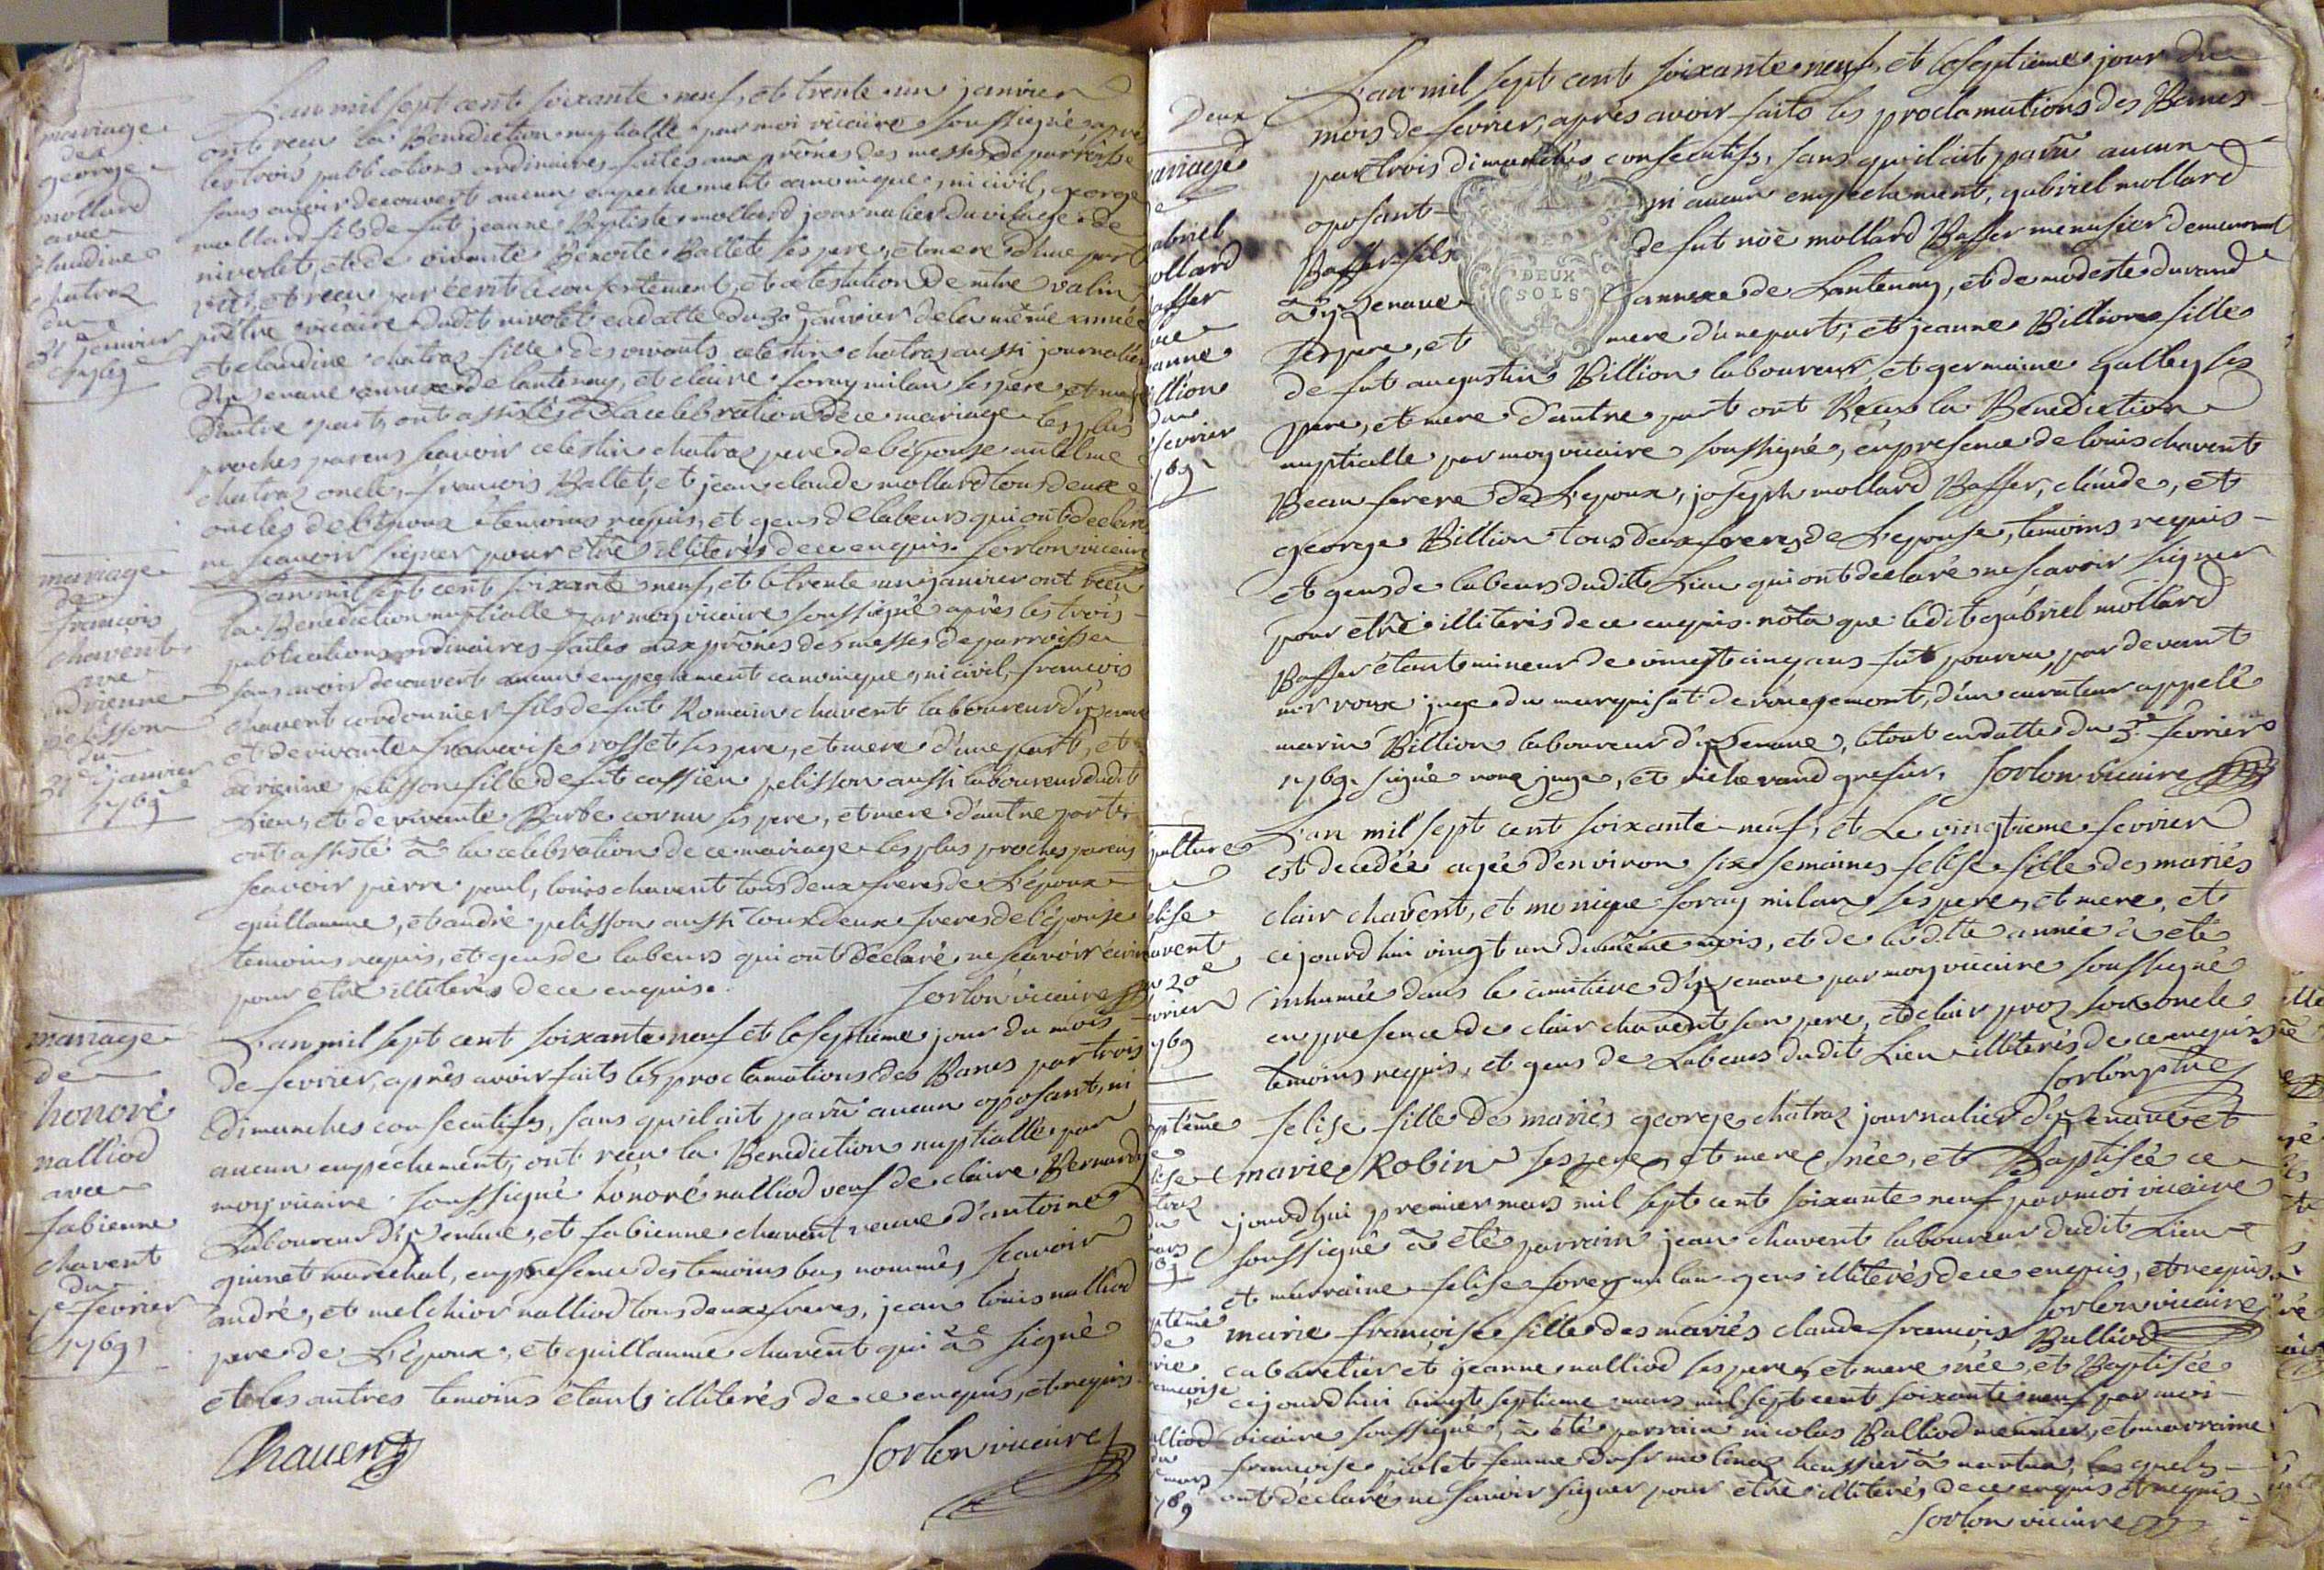 mariage
de
george
mollard
avec
claudine
chatraz
du
31 janvier
1769
L'an mil sept cent soixante neuf, et trente un janvier
ont reçu la Benediction nuptialle par moi vicaire soussigné apres
les trois publications ordinaires faites aux prônes des messes de parroisse
sans avoir decouvert aucun empechement canonique, ni civil, george
mollard fils de fut jeanne Baptiste mollard journalier du village de
nivolet, et de vivante Benoite Ballet ses pere, et mere d'une part
et reçu par écrit le consentement, et attestation de mtre valin
prêtre vicaire dudit nivolet en datte du 30 janvier de la même année
et claudine chatraz fille des vivants celestin chatraz aussi journalier
d'izenave annexe de lantenay, et claire foray milan ses pere et mere
d'autre part, ont assistés à la celebration de ce mariage les plus
proches parens scavoir celestin chatraz pere de l'épouse anthelme
chatraz oncle, francois Ballet, et jean claude mollard tous deux
oncles de l'époux temoins requis, et gens de labeurs qui ont declaré
ne scauoir signer pour être illiterés de ce enquis. sorlon vicaire
mariage
de
francois
chavent
avec
adrienne
pelisson
du
31e janvier
1769
L'an mil sept cent soixante neuf, et le trente un janvier ont reçu
la Benediction nuptialle par moy vicaire soussigné apres les trois
publications ordinaires faites aux prônes des messes de parroisse
sans avoir decouvert aucun empechement canonique, ni civil, francois
chavent cordonnier fils de fut Romain chavent laboureur d'izenave
et de vivante francoise rosset ses pere, et mere d'une part, et
adrienne pelisson fille de fut cassien pelisson aussi laboureur dudit
Lieu, et de vivante Barbe cornu ses pere, et mere d'autre part
ont assisté à la celebration de ce mariage les plus proches parens
scavoir pierre paul, louis chavent tous deux freres de L'époux
guillaume, et andré pelisson aussi tous deux freres de l'épouse
temoins requis, et gens de labeurs qui ont déclaré ne scavoir écrire
pour être illiterés de ce enquis. sorlon vicaire
mariage
de
honoré
nalliod
avec
fabienne
chavent
du
7e fevrier
1769
L'an mil sept cent soixante neuf et le septieme jour du mois
de fevrier, après avoir faits les proclamations des Banes par trois
dimanches consecutifs, sans qu'il ait parû aucun oposant, ni
aucun empechement, ont reçu la Benediction nuptialle par
moy vicaire soussigné honoré nalliod veuf de claire Bernard
Laboureur d'izenave, et fabienne chavent veuve d'antoine
guinet marechal, en presence des temoins bas nommés, scavoir
andré, et melchior nalliod tous deux freres, jean louis nalliod
pere de L'époux, et guillaume chavent qui à signé
et les autres temoins étants illiterés de ce enquis, et requis
Chauent
sorlon vicaire
Deux
mariage
de
abriel
ollard
asser
anne
llion
du
fevrier
769
L'an mil sept cent soixante neuf, et le septieme jour du
mois de fevrier, après avoir faits les proclamations des Banes
par trois dimanches consecutifs, sans qu'il ait parû aucun
oposant ni aucun empechement, gabriel mollard
Basser fils de fut noë mollard Basser menusier demeurant
à izenave annexe de Lantenay, et de modeste durand
ses pere, et mere d'une part; et jeanne Billion fille
de fut augustin Billion laboureur, et germaine galley ses
pere, et mere d'autre part ont Reçu la Benediction
nuptialle par moy vicaire soussigné, en presence de louis chavent
Beau frere de L'epoux, joseph mollard Basser, claude, et
george Billion tous deux freres de L'epouse, temoins requis
et gens de labeurs dudit Lieu qui ont declaré ne scavoir signer
pour etre illiterés de ce enquis. nota que ledit gabriel mollard
Basser étant mineur de vingt cinq ans fut pourvu par devant
mr roux juge du marquisat de rougemont, d'un curateur appellé
marin Billion laboureur d'izenave, le tout en datte du 3e fevrier
1769. signé roux juge, et richerand grefier. sorlon vicaire
DEUX
SOLS
pulture
elise
avent
20e
vrier
769
L'an mil sept cent soixante neuf, et Le vingtieme fevrier
est decedée agée d'environ six semaines felise fille des mariés
clair chavent, et monique foray milan ses pere, et mere, et
cejourd'hui vingt un du même mois, et de la dte année à eté
inhumée dans le cimitière d'izenave par moy vicaire soussigné
en presence de clair chavent son pere, et clair proz son oncle
temoins requis, et gens de Labeurs dudit Lieu illiterés de ce enquis
sorlon ptre
ptême
lise
traz
mars
felise fille des mariés george chatraz journalier d'izenave et
marie Robin ses pere, et mere née, et Baptisée ce
jourd'hui premier mars mil sept cent soixante neuf par moi vicaire
soussigné à été parrain jean chavent laboureur dudit Lieu
et marraine felise forey milan gens illiterés de ce enquis, et requis
sorlon vicaire
ptême
de
rie
ancoise
alliod
du
mars
769
marie francoise fille des mariés claude francois Balliod
cabaretier et jeanne nalliod ses pere, et mere née, et Baptisée
cejourd'hui vingt septieme mars mil sept cent soixante neuf par moi
vicaire soussigné, à été parrain nicolas Balliod meunier, et marraine
francoise piolet femme du sr molinaz huissier à nantua, lesquels
ont déclarés ne savoir signer pour être illiterés de ce enquis et requis
sorlon vicaire